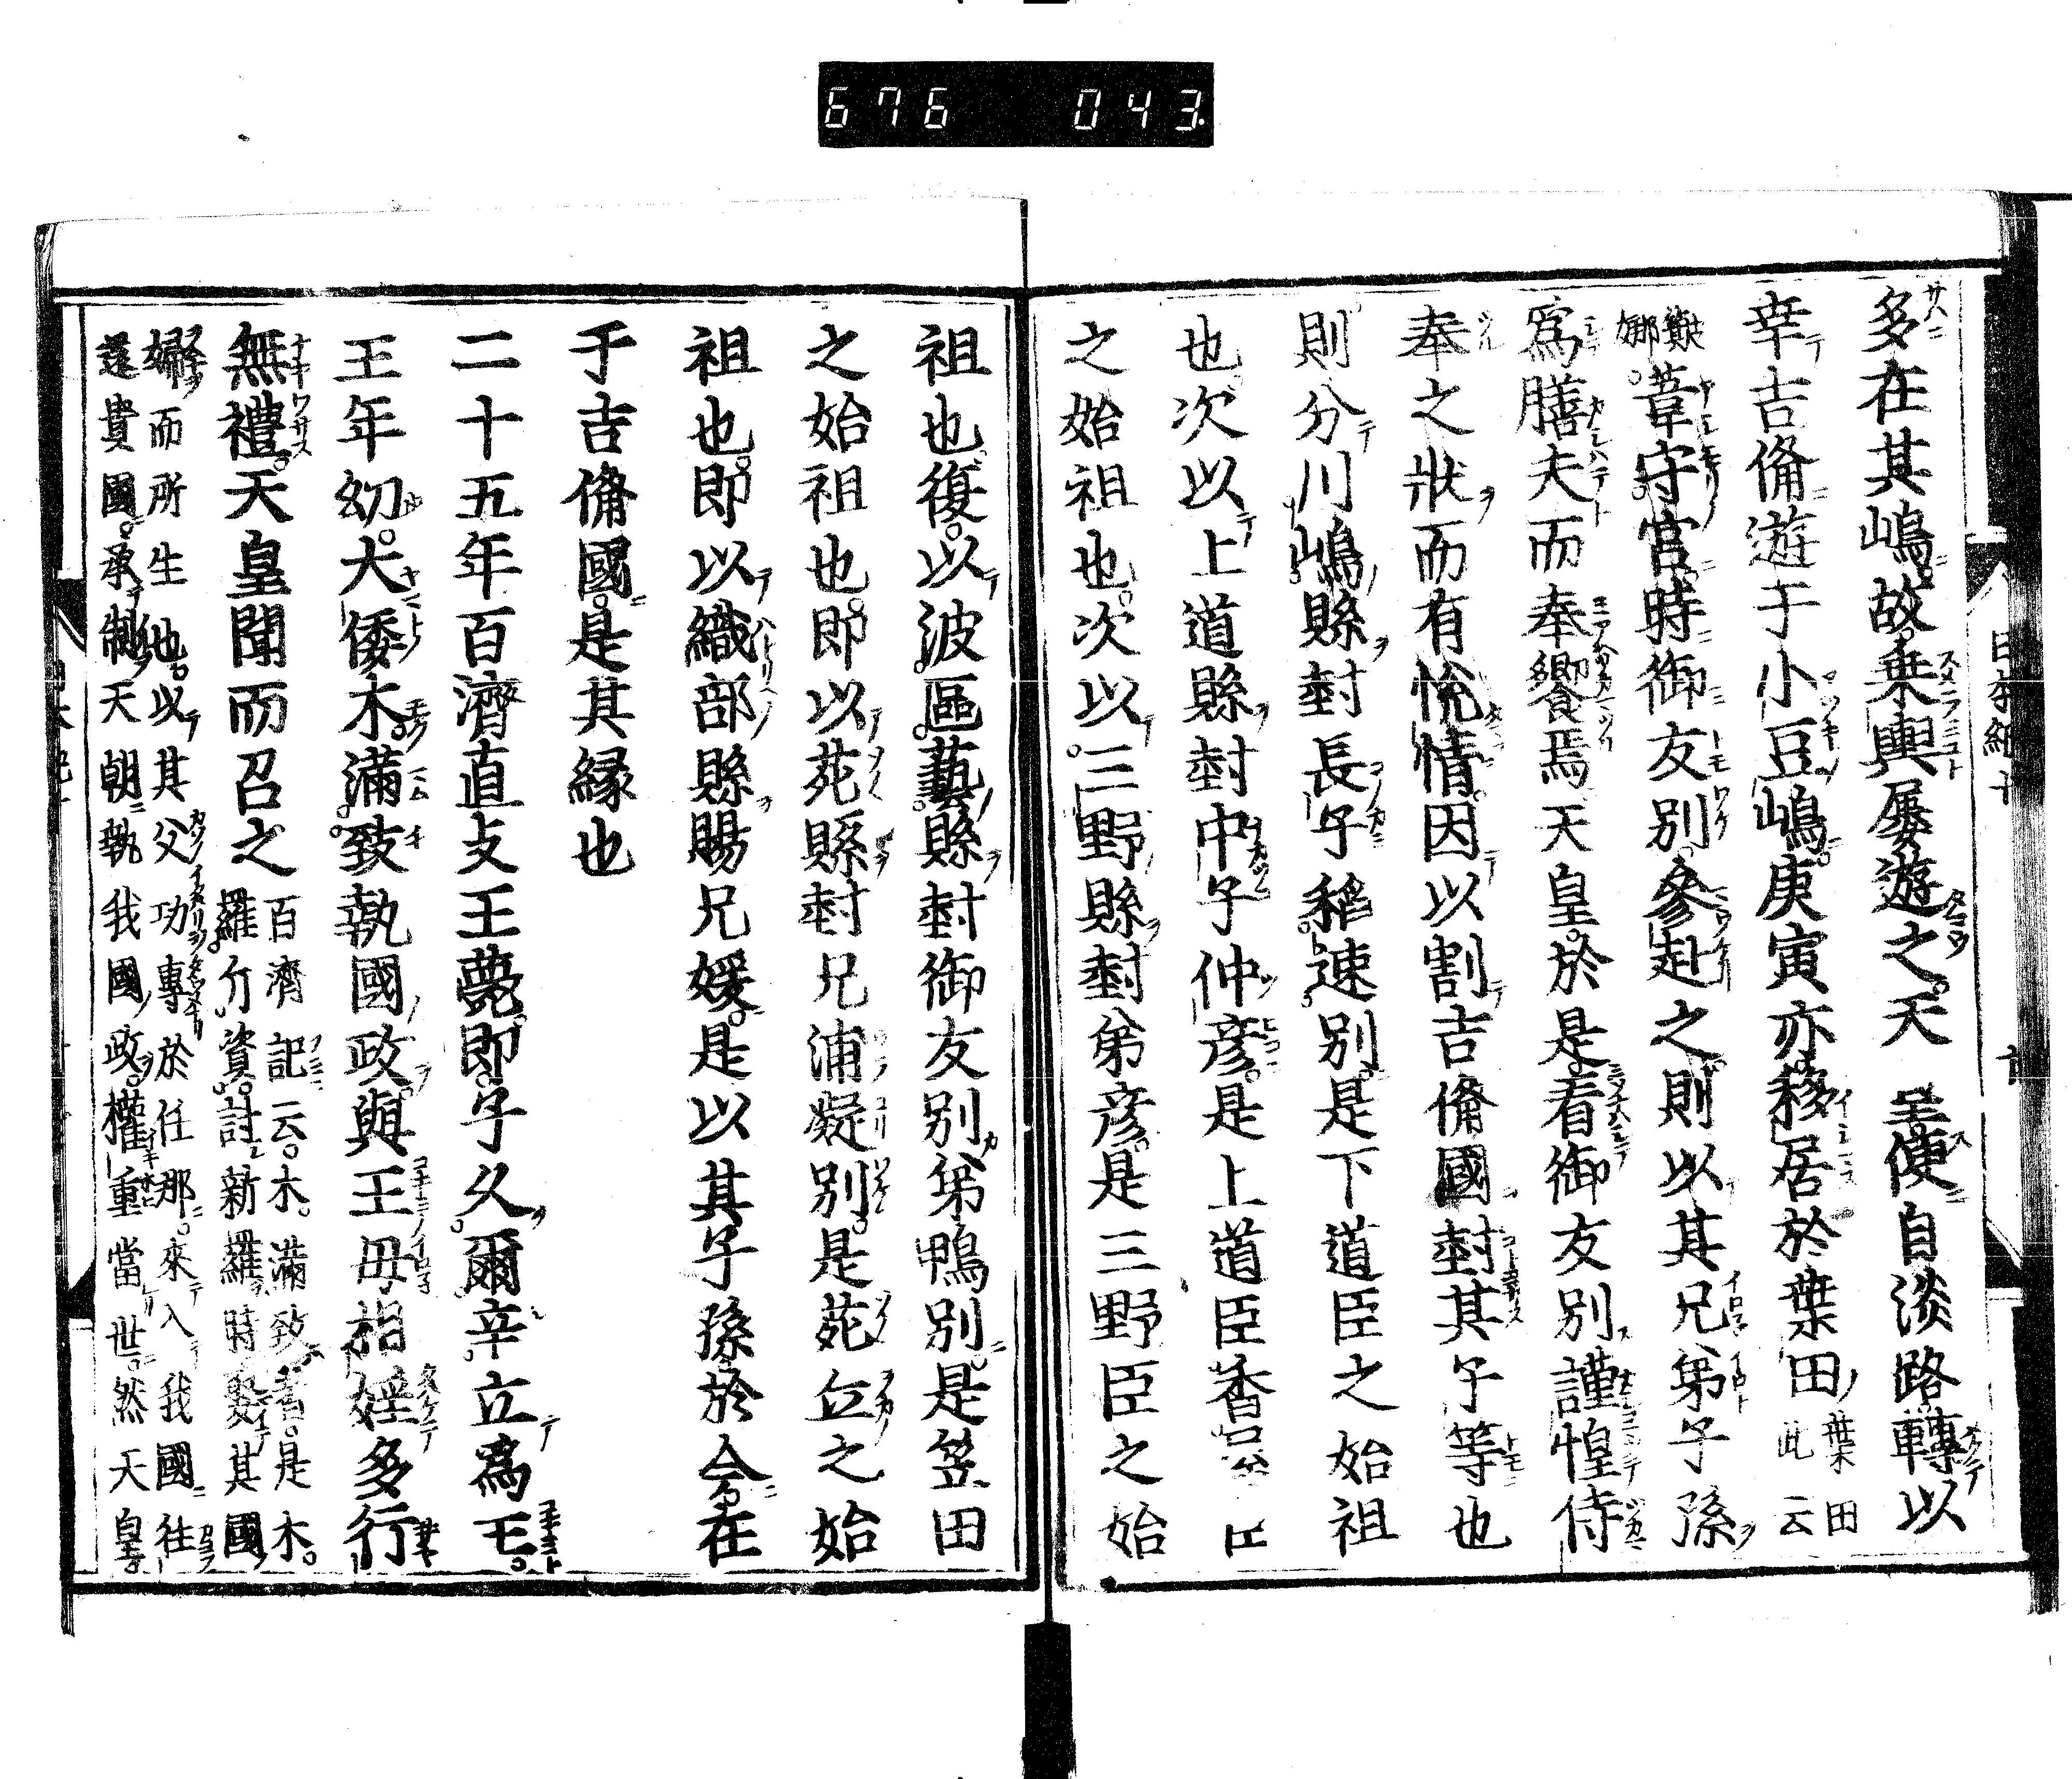 676 043.
多在其嶋故乗輿屡遊之天皇便自淡路轉以
幸吉備遊于小豆嶋庚寅亦移居於葉田葉田此云
簸娜葦守宮時御友別參赴之則以其兄弟子孫
為膳夫而奉饗焉天皇於是看御友別謹惶侍
奉之狀而有悅情因以割吉備國封其子等也
則分川嶋縣封長子稻速別是下道臣之始祖
也次以上道縣封中子仲彦是上道臣香
之始祖也次以三野縣封弟彦是三野臣之始
祖也復以波區藝縣封御友別弟鴨別是笠田
之始祖也即以苑縣封兄浦凝別是苑之始
祖也即以織部縣賜兄媛是以其子孫於今在
于吉備國是其縁也
二十五年百濟直支王薨即子久爾辛立為王
王年幼大倭木滿致執國政與王母相婬多行
無禮天皇聞而召之百濟記云木滿致者是木
羅斤資討新羅時娶其國
婦而所生也以其父功專於任那來入我國往
還貴國承制天朝執我國政權重當世然天皇